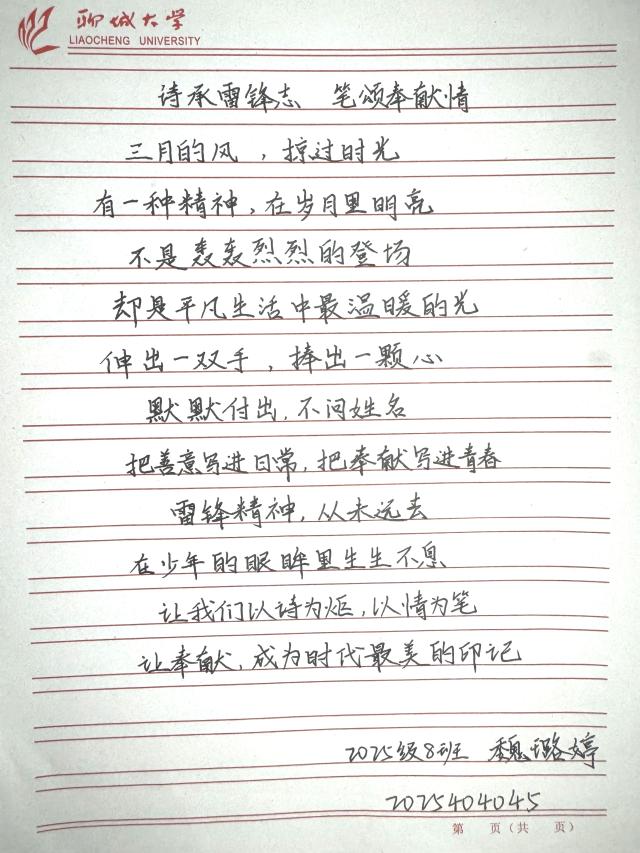 聊城大学
LIAOCHENG UNIVERSITY
诗承雷锋志 笔颂奉献情
三月的风，掠过时光
有一种精神，在岁月里明亮
不是轰轰烈烈的登场
却是平凡生活中最温暖的光
伸出一双手，捧出一颗心
默默付出，不问姓名
把善意写进日常，把奉献写进青春
雷锋精神，从未远去
在少年的眼眸里生生不息
让我们以诗为炬，以情为笔
让奉献，成为时代最美的印记
2025级8班 魏璐婷
2025404045
第 页（共 页）